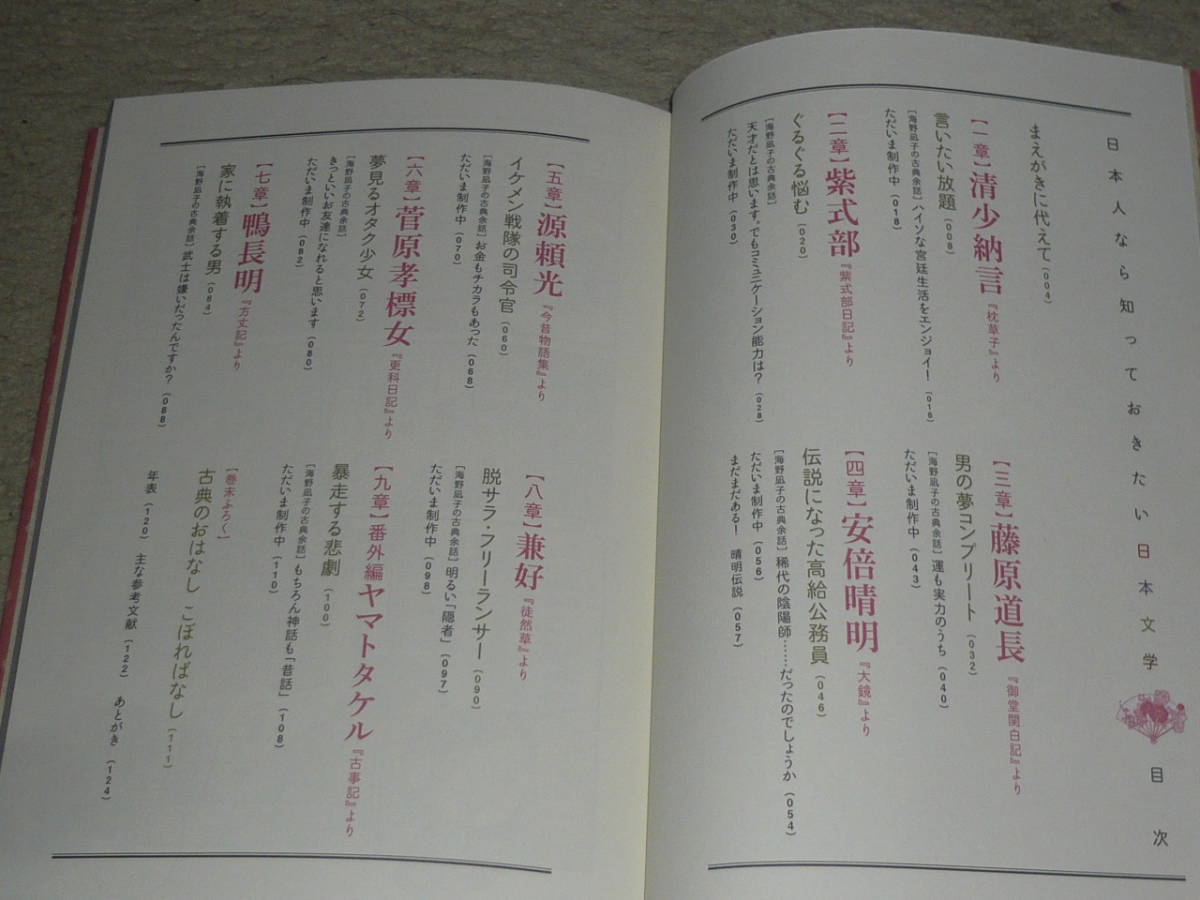 日本人なら知っておきたい日本文学 目次
まえがきに代えて（004）
【一章】清少納言『枕草子』より
言いたい放題（008）
［海野凪子の古典余話］ハイソな宮廷生活をエンジョイ！（016）
ただいま制作中（018）
【二章】紫式部『紫式部日記』より
ぐるぐる悩む（020）
［海野凪子の古典余話］
天才だとは思います。でもコミュニケーション能力は？（028）
ただいま制作中（030）
【三章】藤原道長『御堂関白記』より
男の夢コンプリート（032）
［海野凪子の古典余話］運も実力のうち（040）
ただいま制作中（043）
【四章】安倍晴明『大鏡』より
伝説になった高給公務員（046）
［海野凪子の古典余話］稀代の陰陽師……だったのでしょうか（054）
ただいま制作中（056）
まだまだある！ 晴明伝説（057）
【五章】源頼光『今昔物語集』より
イケメン戦隊の司令官（060）
［海野凪子の古典余話］お金もチカラもあった（068）
ただいま制作中（070）
【六章】菅原孝標女『更科日記』より
夢見るオタク少女（072）
［海野凪子の古典余話］
きっといいお友達になれると思います（080）
ただいま制作中（082）
【七章】鴨長明『方丈記』より
家に執着する男（084）
［海野凪子の古典余話］武士は嫌いだったんですか？（088）
【八章】兼好『徒然草』より
脱サラ・フリーランサー（090）
［海野凪子の古典余話］明るい「隠者」（097）
ただいま制作中（098）
【九章】番外編 ヤマトタケル『古事記』より
暴走する悲劇（100）
［海野凪子の古典余話］もちろん神話も「昔話」（108）
ただいま制作中（110）
［巻末ふろく］
古典のおはなし こぼればなし（111）
年表（120） 主な参考文献（122） あとがき（124）